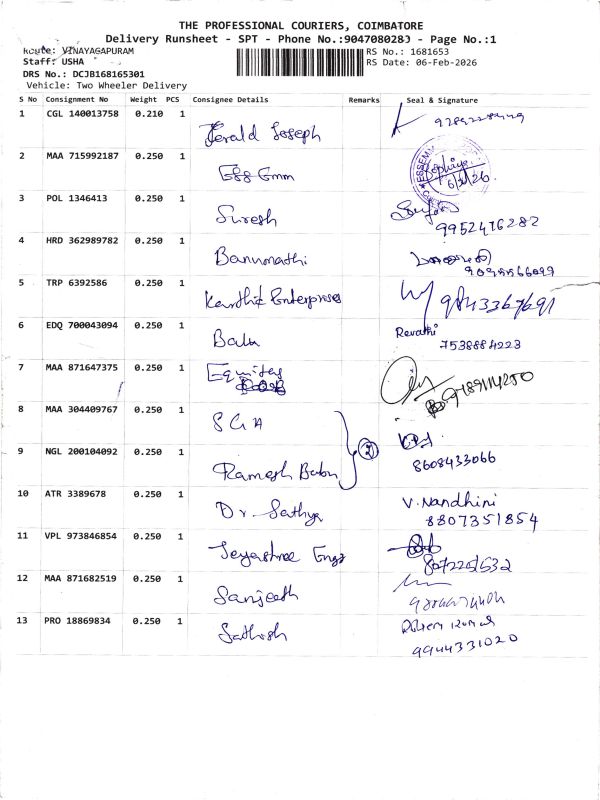 THE PROFESSIONAL COURIERS, COIMBATORE
Delivery Runsheet - SPT - Phone No.:9047080283 - Page No.:1
Route: VINAYAGAPURAM
RS No.: 1681653
Staff: USHA
RS Date: 06-Feb-2026
DRS No.: DCJB168165301
Vehicle: Two Wheeler Delivery
S No Consignment No Weight PCS Consignee Details Remarks Seal & Signature
1 CGL 140013758 0.210 1
Jerald Joseph
2 MAA 715992187 0.250 1
ESSEM
6/2/26
3 POL 1346413 0.250 1
Suresh
9952476282
4 HRD 362989782 0.250 1
Banumathi
5 TRP 6392586 0.250 1
Karthik Enterprises
9843367691
6 EDQ 700043094 0.250 1
Babu
Revathi
7538884223
7 MAA 871647375 0.250 1
Equitas
8 MAA 304409767 0.250 1
S G A
2
9 NGL 200104092 0.250 1
8608433066
Ramesh Babu
10 ATR 3389678 0.250 1
Dr. Sathya
V. Nandhini
8807351854
11 VPL 973846854 0.250 1
Jeyashree Engg
12 MAA 871682519 0.250 1
Sanjeeth
13 PRO 18869834 0.250 1
Sathish
9944331020